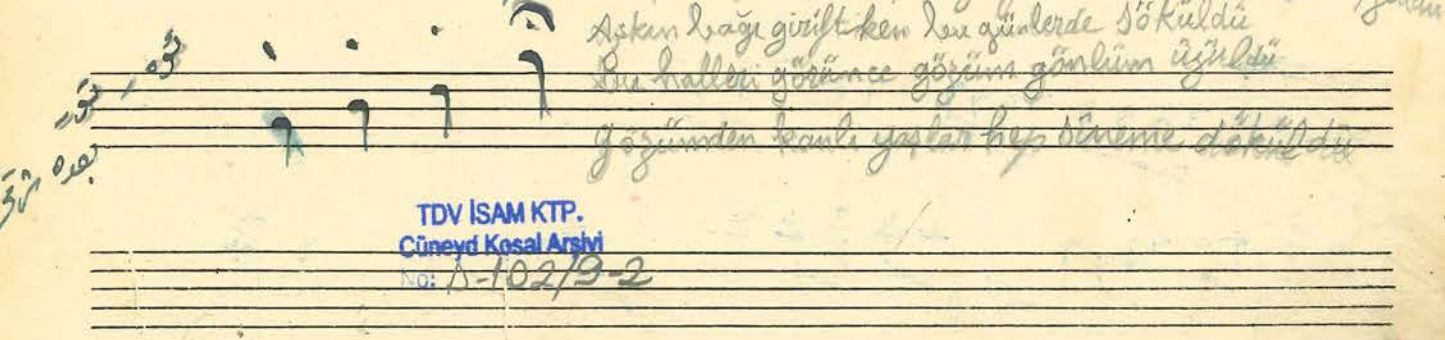 Aşkın bağı girift ken bu günlerde söküldü
Bu halleri görünce gözüm gönlüm üzüldü
Gözümden kanlı yaşlar hep sineme döküldü
TDV İSAM KTP.
Cüneyd Kosal Arşivi
No: A-102/9-2